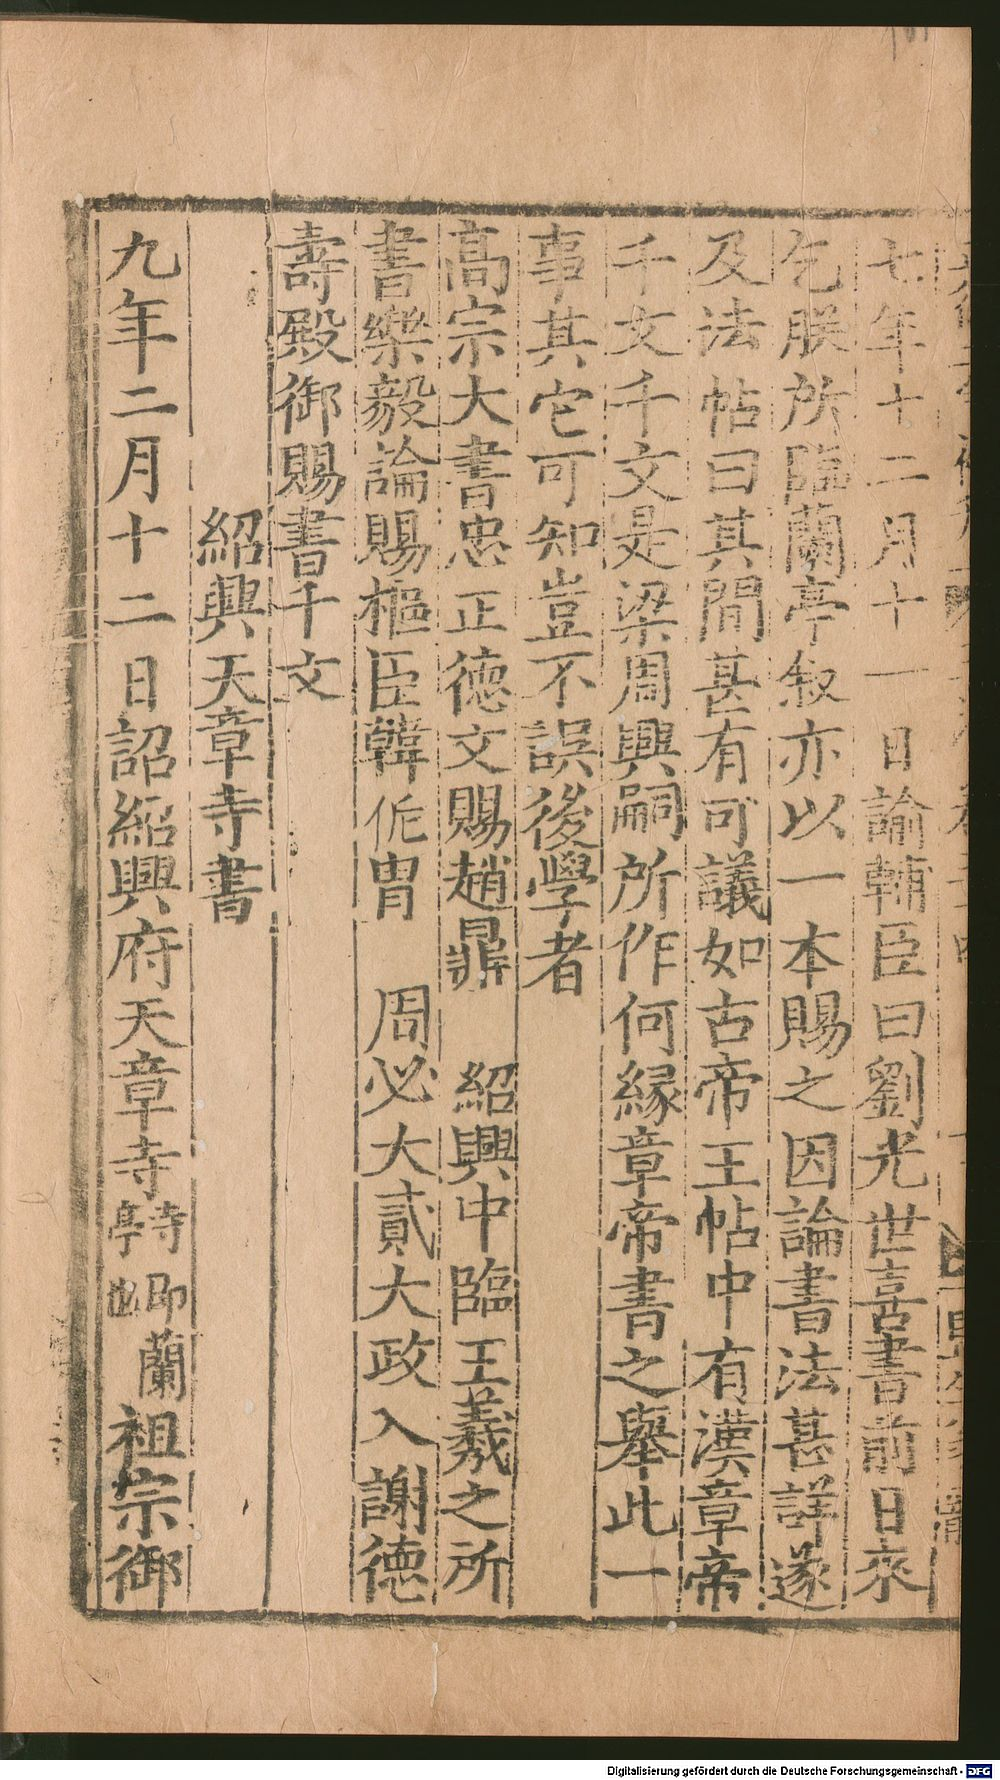 七年十二月十一日諭輔臣曰劉光世喜書前日來
乞朕所臨蘭亭叙亦以一本賜之因論書法甚詳遂
及法帖曰其間甚有可議如古帝王帖中有漢章帝
千文千文是梁周興嗣所作何緣章帝書之舉此一
事其它可知豈不誤後學者
高宗大書忠正德文賜趙鼎　紹興中臨王羲之所
書樂毅論賜樞臣韓侂胄　周必大貳大政入謝德
壽殿御賜書千文
紹興天章寺書
九年二月十二日詔紹興府天章寺寺即蘭亭也祖宗御
Digitalisierung gefördert durch die Deutsche Forschungsgemeinschaft - DFG